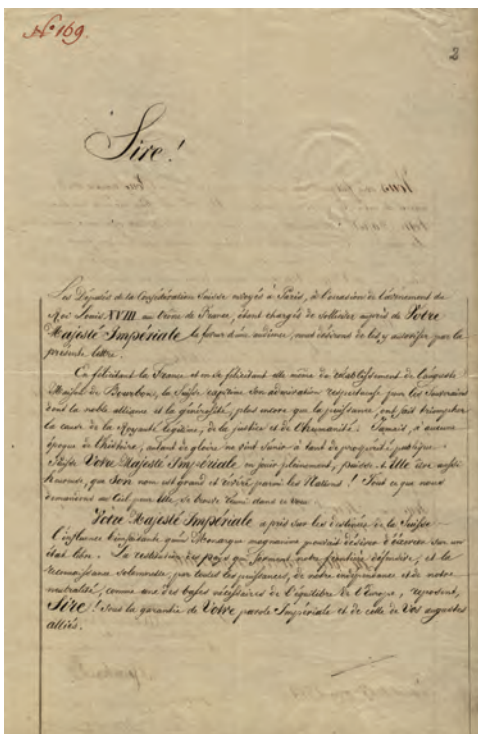 No 169.
2
Sire!
Les Députés de la Confédération Suisse envoyés à Paris, à l'occasion de l'avènement du
Roi Louis XVIII au trône de France, étant chargés de solliciter auprès de Votre
Majesté Impériale la faveur d'une audience, nous désirons de les y autoriser par la
présente lettre.
En félicitant la France et en se félicitant elle même du rétablissement de l'auguste
Maison de Bourbon, la Suisse exprime son admiration respectueuse pour les Souverains
dont la noble alliance et la générosité, plus encore que la puissance, ont fait triompher
la cause de la Royauté légitime, de la justice et de l'humanité. Jamais, à aucune
époque de l'histoire, autant de gloire ne vint s'unir à tant de prospérité publique.
Puisse Votre Majesté Impériale en jouir pleinement, puisse-t-Elle être aussi
heureuse, que Son nom est grand et révéré parmi les Nations! Tout ce que nous
demandons au Ciel pour Elle, se trouve réuni dans ce voeu.
Votre Majesté Impériale a pris sur les destinées de la Suisse
l'influence bienfaisante qu'un Monarque magnanime pouvait désirer d'exercer sur un
état libre. La restitution des pays qui forment notre frontière défensive, et la
reconnaissance solennelle, par toutes les puissances, de notre indépendance et de notre
neutralité, comme une des bases nécessaires de l'équilibre de l'Europe, reposent,
Sire! sous la garantie de Votre parole Impériale et de celle de Vos augustes
alliés.